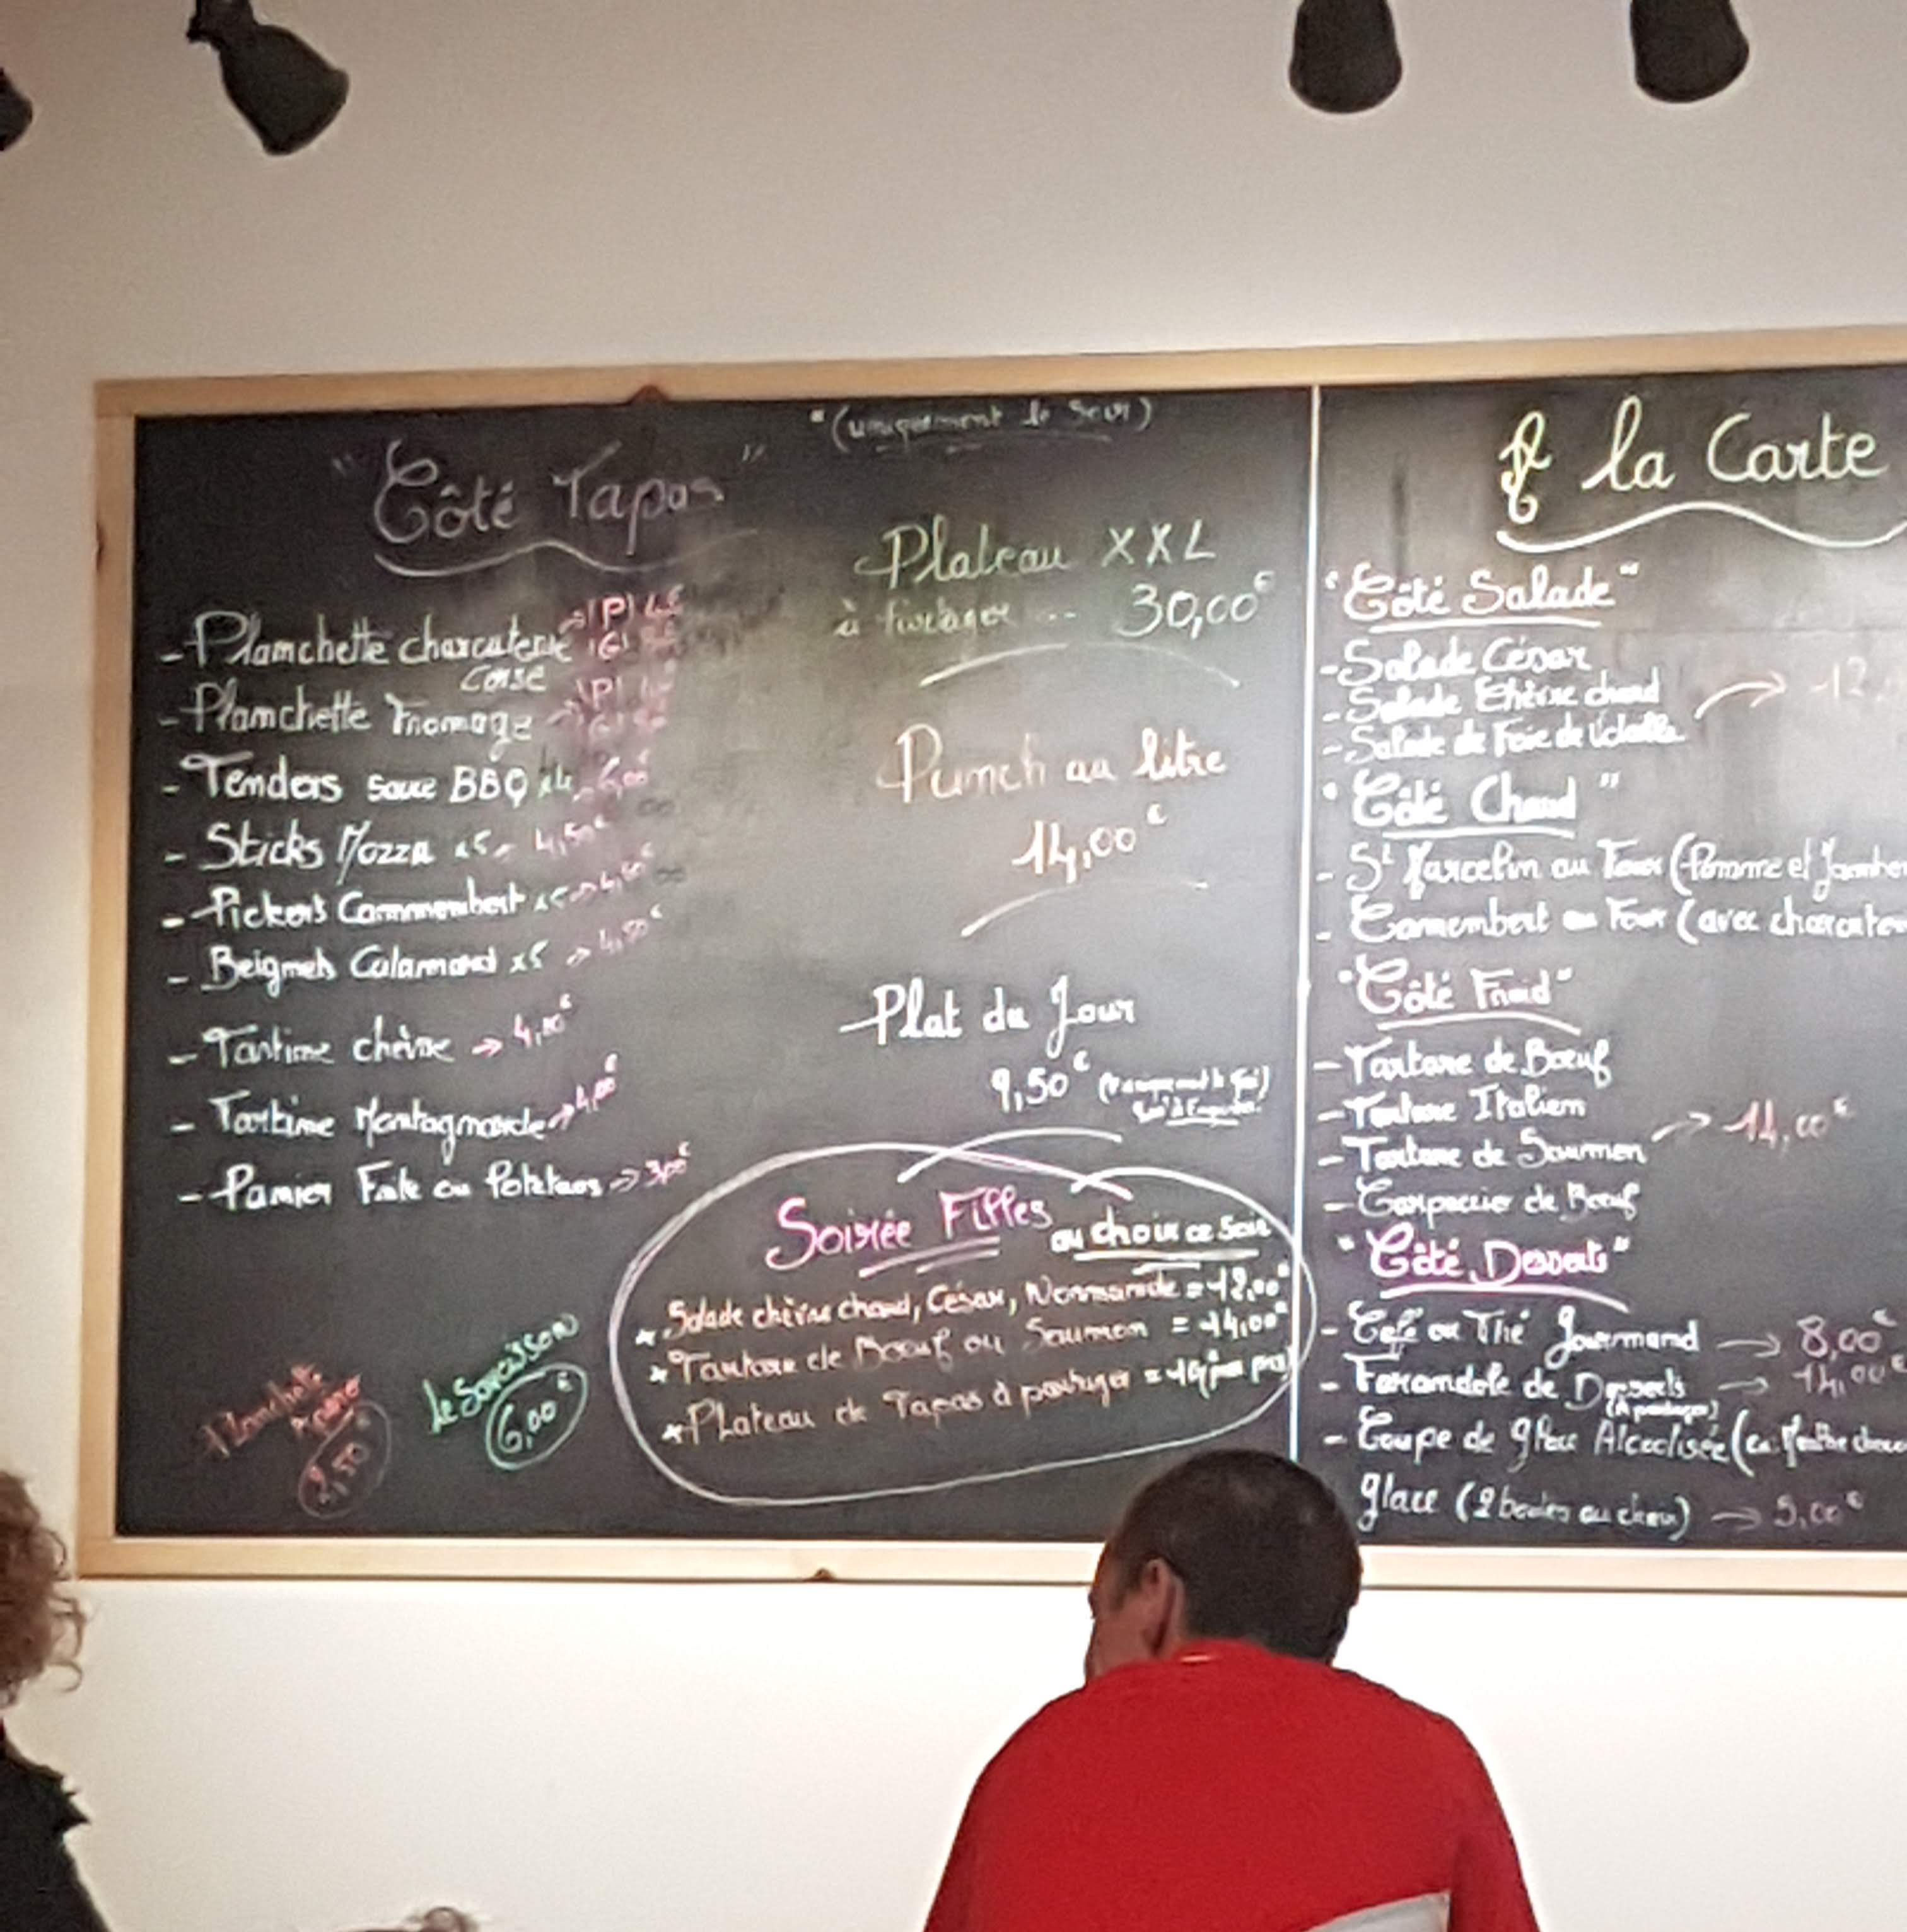 "Côté Tapas"
"(uniquement le soir)
- Planchette charcuterie
Corse
- Planchette Fromage
- Tenders sauce BBQ x4 6,00€
- Sticks Mozza x5 4,50€
- Pickers Cammembert x5 → 4,50€
- Beignets Calamard x5 → 4,50€
- Tartine chèvre → 4,00€
- Tartine Montagnarde → 4,00€
- Panier Frite ou Potatoes → 3,00€
Planchette
2,50
Le Saucisson
6,00€
Plateau XXL
à partager ... 30,00€
Punch au litre
14,00€
Plat du Jour
9,50€ (uniquement le
Soirée Filles au choix ce soir
* Salade chèvre chaud, César, Normande = 12,00€
* Tartare de Boeuf ou Saumon = 14,00€
* Plateau de Tapas à partager
A la Carte
"Côté Salade"
- Salade César
- Salade Chèvre chaud
- Salade de Foie de Volaille
"Côté Chaud"
- St Marcelin au Four (Pomme et Jambon
- Camembert au Four (avec charcuterie
"Côté Froid"
- Tartare de Boeuf
- Tartare Italien
- Tartare de Saumon → 14,00€
- Carpaccio de Boeuf
"Côté Desserts"
- Café ou Thé Gourmand → 8,00€
- Farandole de Desserts → 14,00€
(A partager)
- Coupe de glace Alcoolisée
glace (2 boules au choix) → 5,00€